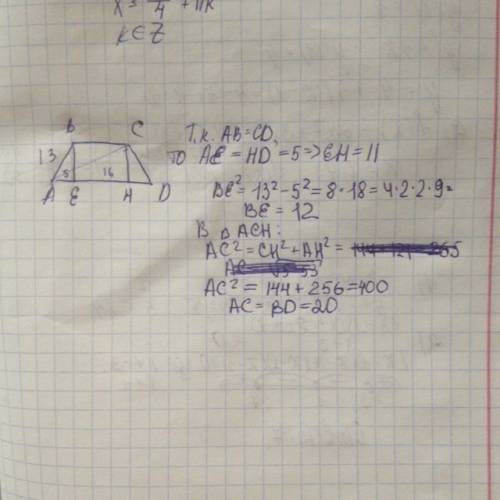 x = π/4 + πk
k∈Z
B C
13
5 16
A E H D
Т.к. AB=CD,
то AE=HD=5=>EH=11
BE²=13²-5²=8·18=4·2·2·9=
BE=12
В △ACH:
AC²=CH²+AH²=
AC²=144+256=400
AC=BD=20